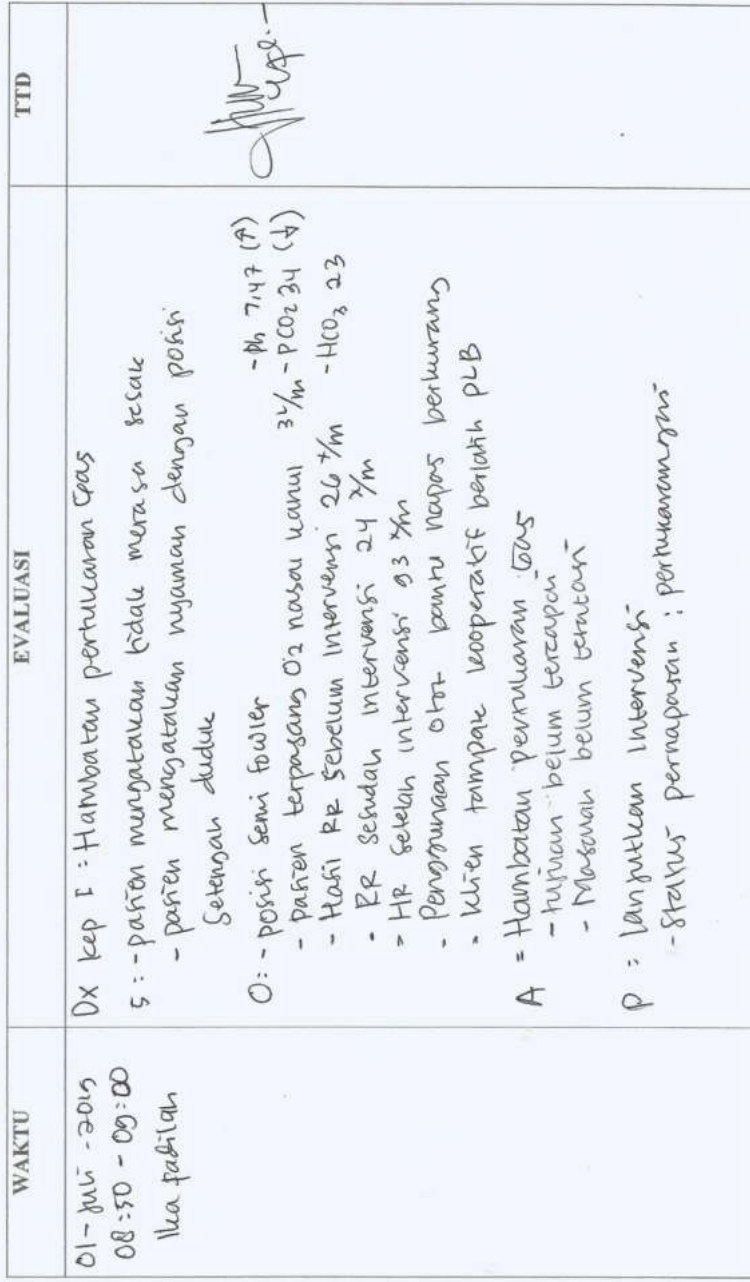 WAKTU
EVALUASI
TTD
01 - Juli - 2019
08:50 - 09:00
Ika padilah
Dx kep I : Hambatan pertukaran Gas
S : - pasien mengatakan tidak merasa sesak
- pasien mengatakan nyaman dengan posisi
setengah duduk
O : - posisi semi fowler
- pasien terpasang O2 nasal kanul 3L/m
- Hasil RR sebelum intervensi 26 x/m
- RR sesudah intervensi 24 x/m
- HR setelah intervensi 93 x/m
- Penggunaan otot bantu napas berkurang
- Klien tampak kooperatif berlatih PLB
- Ph 7,47 (↑)
- PCO2 34 (↓)
- HCO3 23
A = Hambatan pertukaran Gas
- tujuan belum tercapai
- Masalah belum teratasi
P : lanjutkan intervensi
- Status pernapasan : pertukaran gas